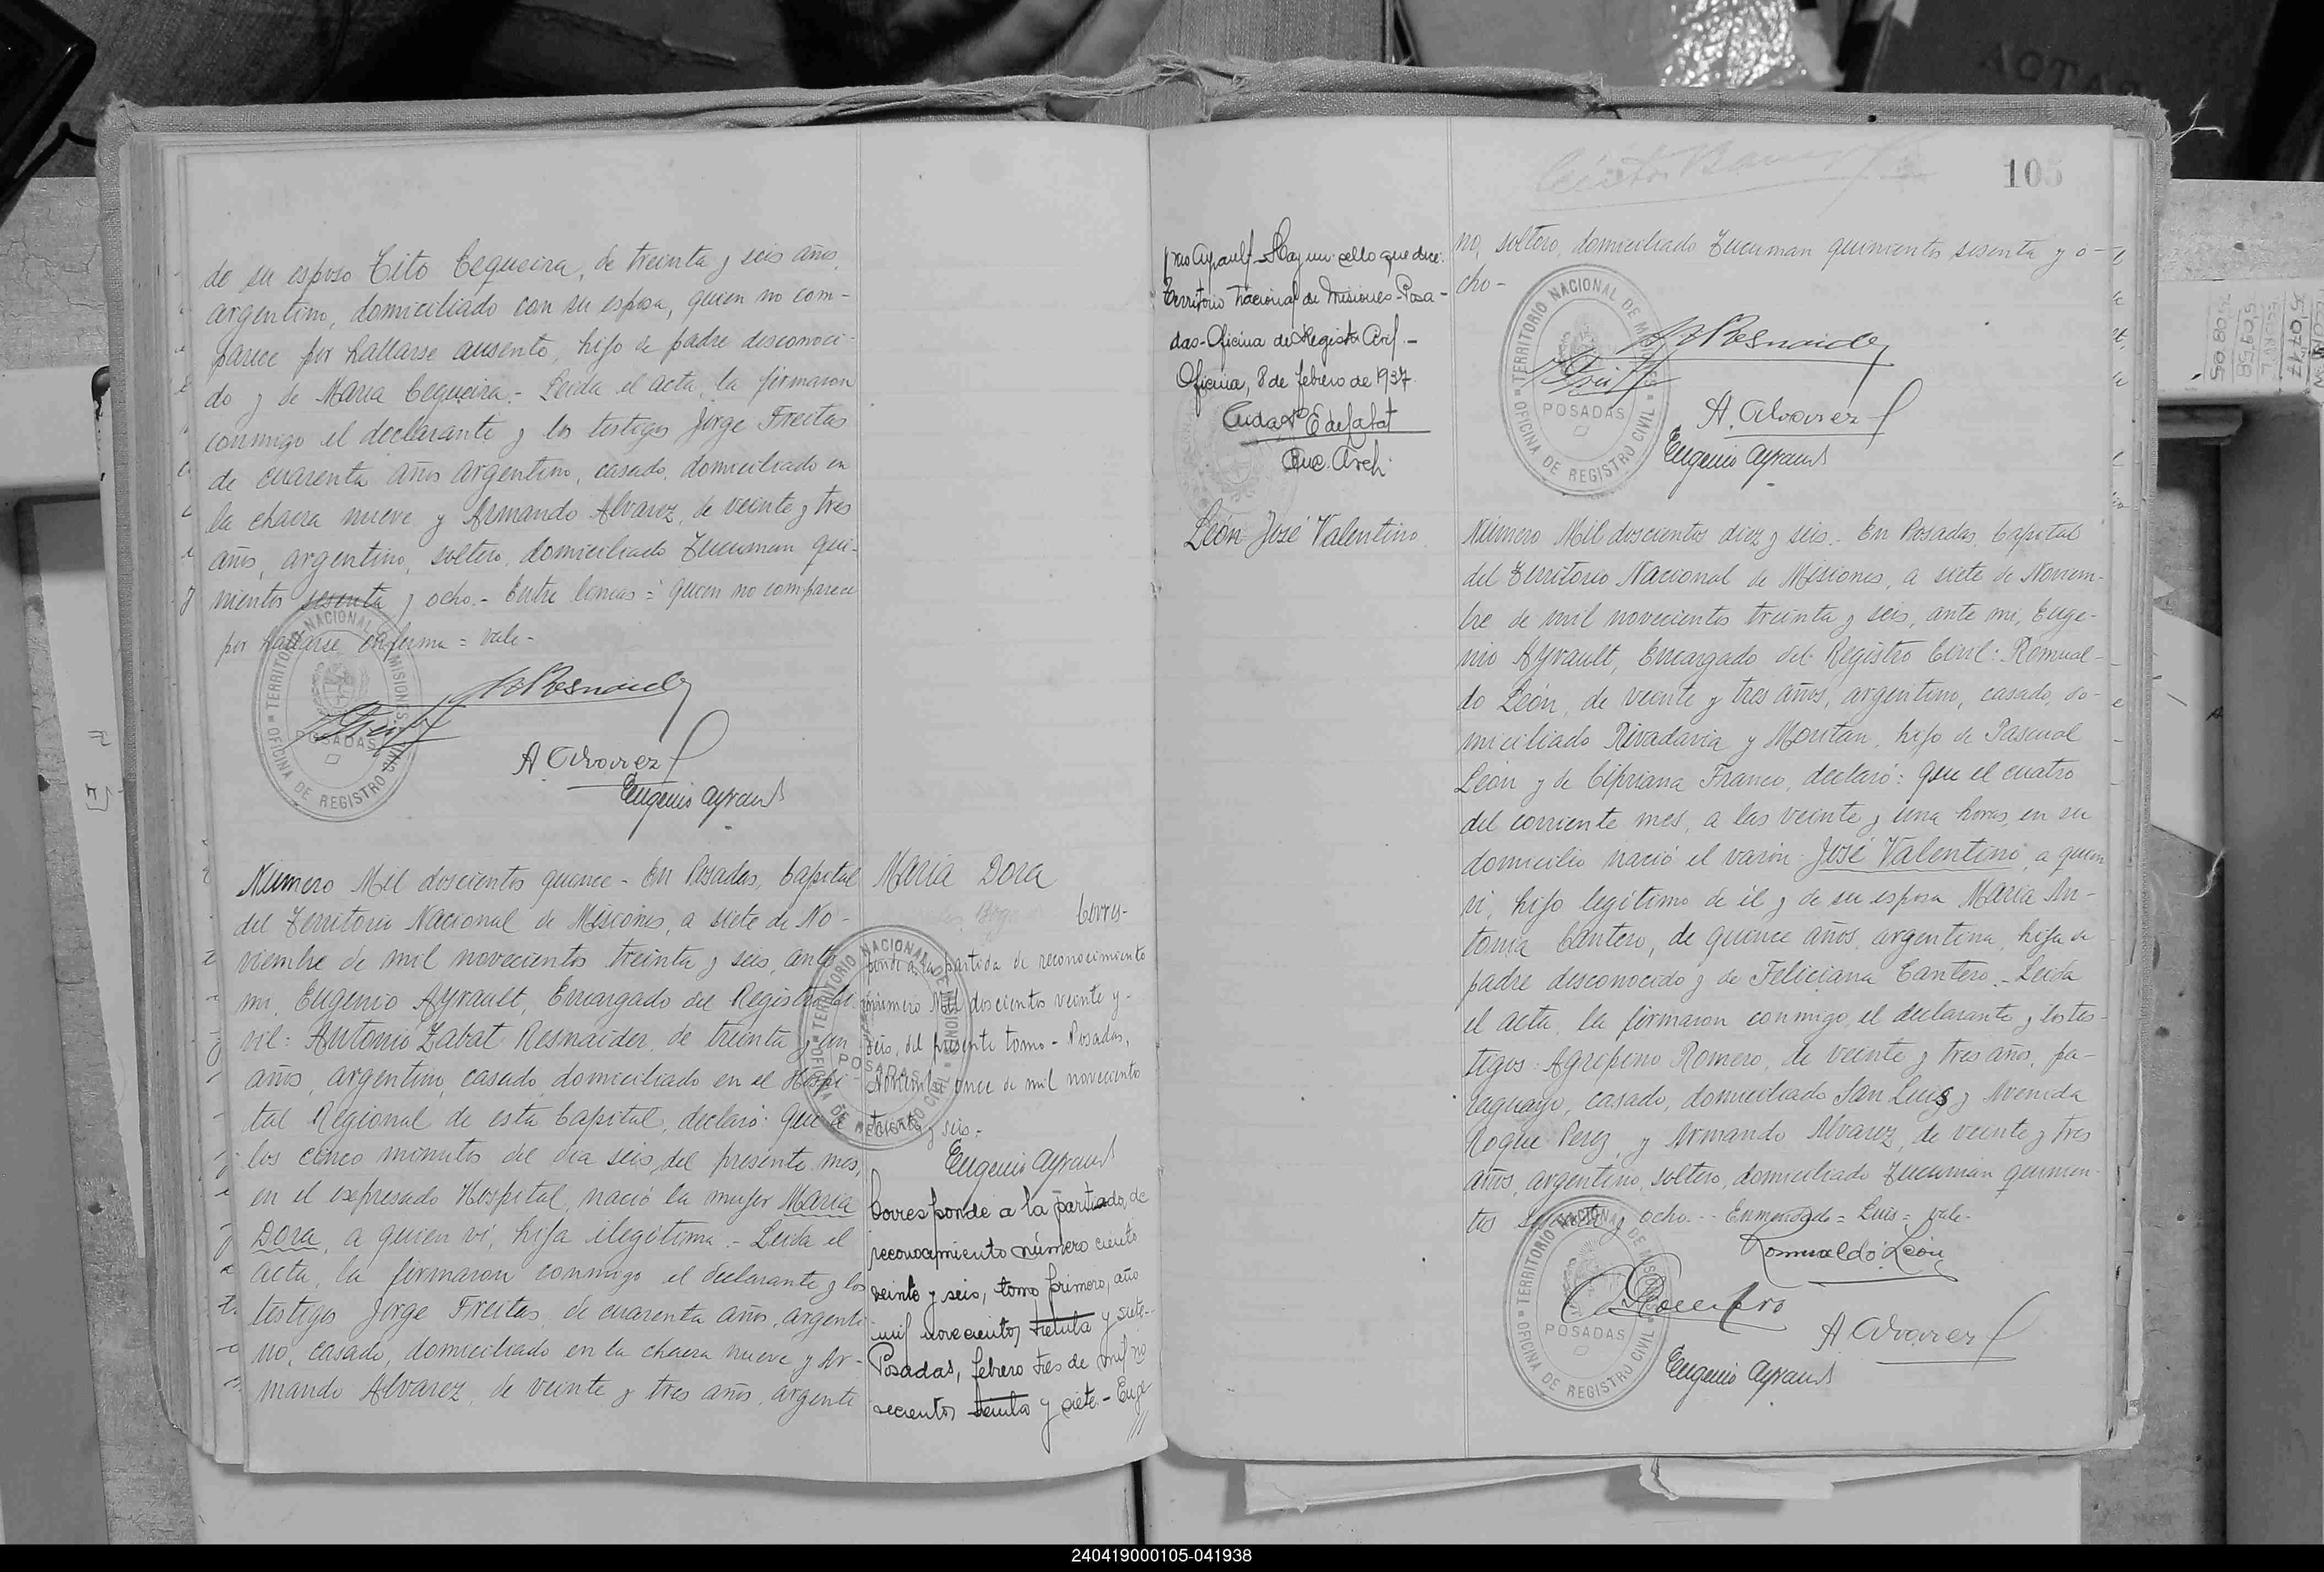 de su esposo Tito Cequeira, de treinta y seis años,
argentino, domiciliado con su esposa, quien no com-
parece por hallarse ausente, hijo de padre desconoci-
do y de Maria Cequeira.- Leida el acta, la firmaron
conmigo el declarante y los testigos Jorge Freitas
de cuarenta años argentino, casado, domiciliado en
la chacra nueve y Armando Alvarez, de veinte y tres
años, argentino, soltero, domiciliado Tucuman qui-
nientos sesenta y ocho.- Entre lineas = quien no comparece
por hallarse enferma = vale-
TERRITORIO NACIONAL DE MISIONES
POSADAS
OFICINA DE REGISTRO CIVIL
A. Alvarez
Eugenio Ayrault
Número Mil doscientos quince- En Posadas, Capital
del Territorio Nacional de Misiones, a siete de No-
viembre de mil novecientos treinta y seis, ante
mi, Eugenio Ayrault, Encargado del Registro Ci-
vil: Antonio Zabat Resnaider, de treinta y un
años, argentino, casado, domiciliado en el Hospi-
tal Regional de esta Capital, declaró: Que a
los cinco minutos del dia seis del presente mes,
en el expresado Hospital, nació la mujer Maria
Dora, a quien vi, hija ilegitima.- Leida el
acta, la firmaron conmigo el declarante y los
testigos Jorge Freitas, de cuarenta años, argenti-
no, casado, domiciliado en la chacra nueve y Ar-
mando Alvarez, de veinte y tres años, argenti
Maria Dora
Corres-
ponde a la partida de reconocimiento
número Mil doscientos veinte y-
seis, del presente tomo- Posadas,
Noviembre once de mil novecientos
treinta y seis.-
TERRITORIO NACIONAL DE MISIONES
POSADAS
OFICINA DE REGISTRO CIVIL
Eugenio Ayrault
Corresponde a la partiado, de
reconocimiento número ciento
veinte y seis, tomo primero, año
mil novecientos treinta y siete.-
Posadas, febrero tres de mil no
vecientos treinta y siete.- Euge
///
nio Ayrault- Hay un sello que dice:
Territorio Nacional de Misiones-Posa-
das-Oficina de Registro Civil.-
Oficina, 8 de febrero de 1937.
Arch.
León José Valentino
105
no, soltero, domiciliado Tucuman quinientos sesenta y o-
cho-
TERRITORIO NACIONAL DE MISIONES
POSADAS
OFICINA DE REGISTRO CIVIL
A. Alvarez
Eugenio Ayrault
Número Mil doscientos diez y seis.- En Posadas, Capital
del Territorio Nacional de Misiones, a siete de Noviem-
bre de mil novecientos treinta y seis, ante mi, Euge-
nio Ayrault, Encargado del Registro Civil: Romual-
do León, de veinte y tres años, argentino, casado, do-
miciliado Rivadavia y Moritan, hijo de Pascual
León y de Cipriana Franco, declaró: Que el cuatro
del corriente mes, a las veinte y una horas, en su
domicilio nació el varón José Valentino, a quien
vi, hijo legitimo de él y de su esposa Maria An-
tonia Cantero, de quince años, argentina, hija de
padre desconocido y de Feliciana Cantero.- Leida
el acta, la firmaron conmigo, el declarante y los tes-
tigos: Agripino Romero, de veinte y tres años, pa-
raguayo, casado, domiciliado San Luis y Avenida
Roque Perez, y Armando Alvarez, de veinte y tres
años, argentino, soltero, domiciliado Tucuman quinien-
tos sesenta y ocho.-- Enmendado = Luis = vale-
Romualdo León
TERRITORIO NACIONAL DE MISIONES
POSADAS
OFICINA DE REGISTRO CIVIL
A. Alvarez
Eugenio Ayrault
240419000105-041938